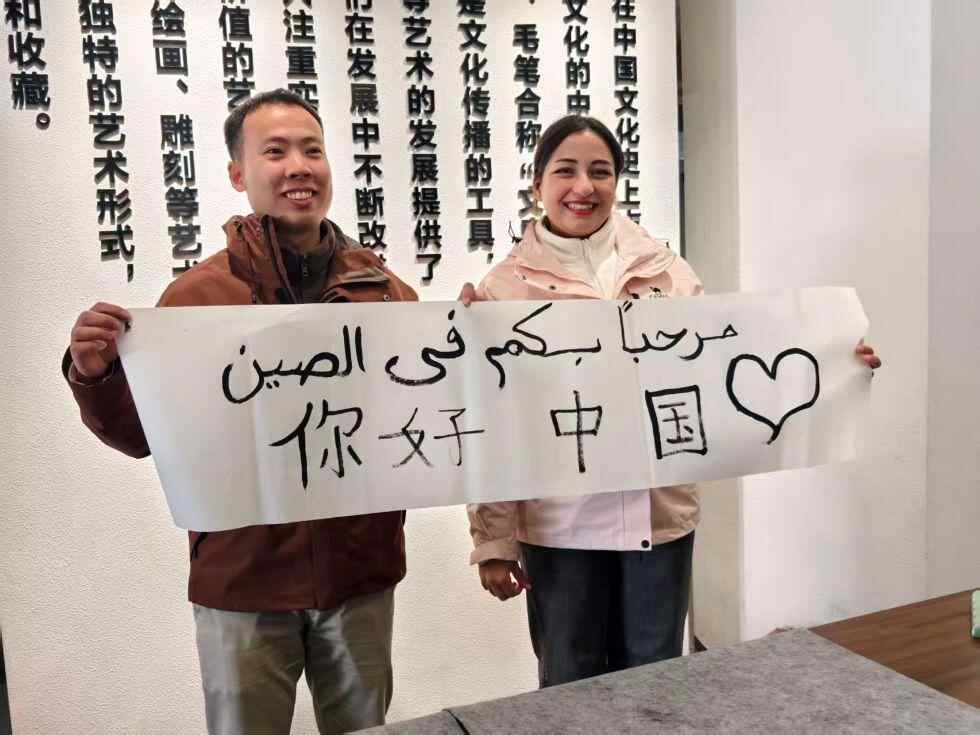 在中国文化史上
文化的中
毛笔合称“文
是文化传播的工具，
等艺术的发展提供了
们在发展中不断改
注重实
价值的艺
绘画、雕刻等艺
独特的艺术形式，
和收藏。
مرحباً بكم فى الصين
你好 中国